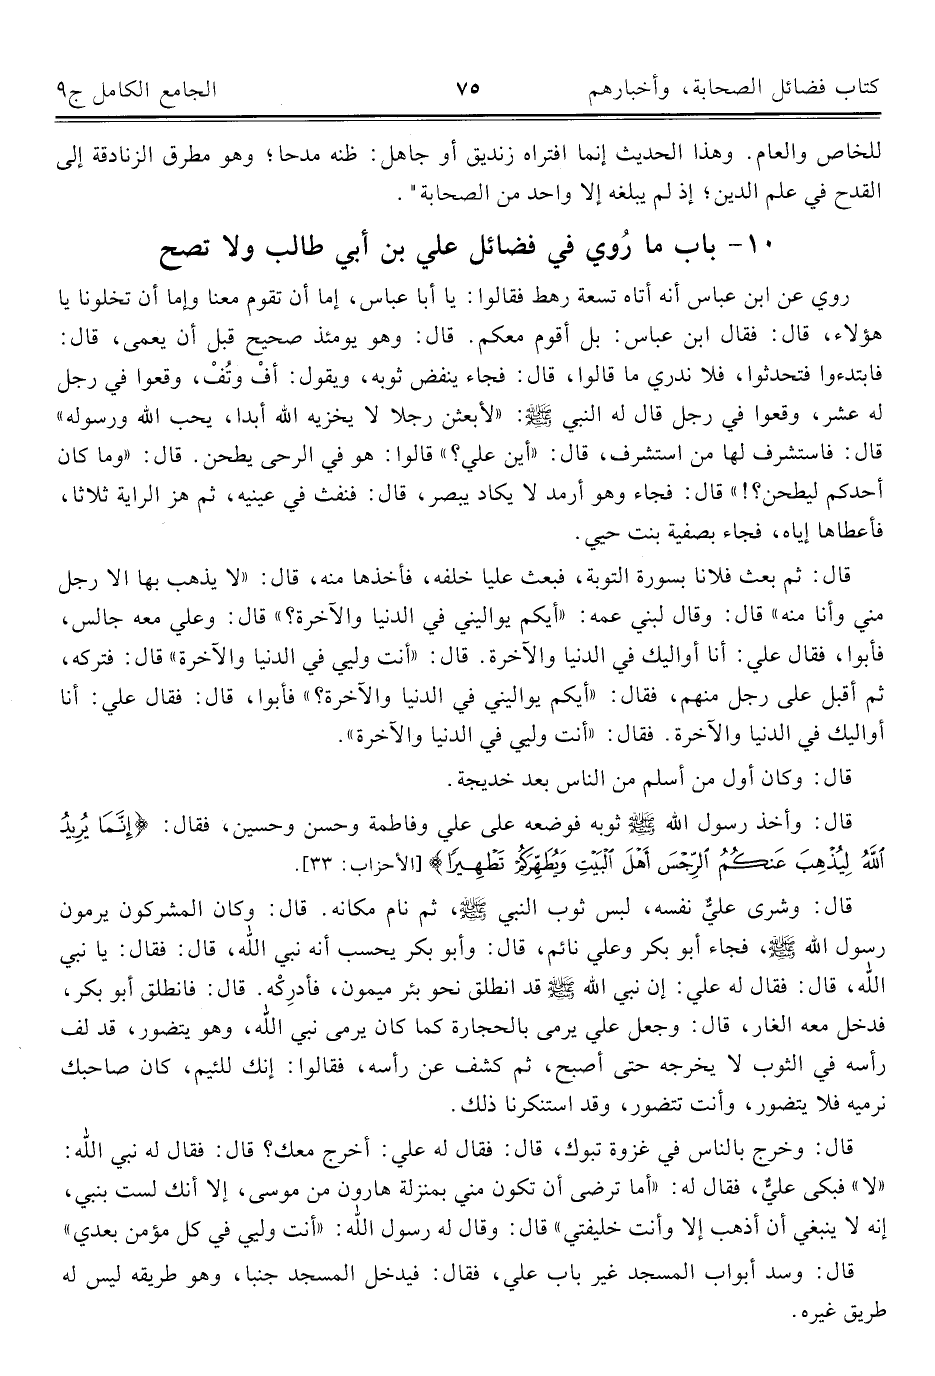 كتاب فضائل الصحابة، وأخبارهم ٧٥ الجامع الكامل ج٩
للخاص والعام. وهذا الحديث إنما افتراه زنديق أو جاهل: ظنه مدحا؛ وهو مطرق الزنادقة إلى
القدح في علم الدين؛ إذ لم يبلغه إلا واحد من الصحابة".
١٠- باب ما رُوي في فضائل علي بن أبي طالب ولا تصح
روي عن ابن عباس أنه أتاه تسعة رهط فقالوا: يا أبا عباس، إما أن تقوم معنا وإما أن تخلونا يا
هؤلاء، قال: فقال ابن عباس: بل أقوم معكم. قال: وهو يومئذ صحيح قبل أن يعمى، قال:
فابتدءوا فتحدثوا، فلا ندري ما قالوا، قال: فجاء ينفض ثوبه، ويقول: أفْ وتُفْ، وقعوا في رجل
له عشر، وقعوا في رجل قال له النبي ﷺ: «لأبعثن رجلا لا يخزيه الله أبدا، يحب الله ورسوله»
قال: فاستشرف لها من استشرف، قال: «أين علي؟» قالوا: هو في الرحى يطحن. قال: «وما كان
أحدكم ليطحن؟!» قال: فجاء وهو أرمد لا يكاد يبصر، قال: فنفث في عينيه، ثم هز الراية ثلاثا،
فأعطاها إياه، فجاء بصفية بنت حيي.
قال: ثم بعث فلانا بسورة التوبة، فبعث عليا خلفه، فأخذها منه، قال: «لا يذهب بها الا رجل
مني وأنا منه» قال: وقال لبني عمه: «أيكم يواليني في الدنيا والآخرة؟» قال: وعلي معه جالس،
فأبوا، فقال علي: أنا أواليك في الدنيا والآخرة. قال: «أنت وليي في الدنيا والآخرة» قال: فتركه،
ثم أقبل على رجل منهم، فقال: «أيكم يواليني في الدنيا والآخرة؟» فأبوا، قال: فقال علي: أنا
أواليك في الدنيا والآخرة. فقال: «أنت وليي في الدنيا والآخرة».
قال: وكان أول من أسلم من الناس بعد خديجة.
قال: وأخذ رسول الله ﷺ ثوبه فوضعه على علي وفاطمة وحسن وحسين، فقال: ﴿إِنَّمَا يُرِيدُ
ٱللَّهُ لِيُذْهِبَ عَنكُمُ ٱلرِّجْسَ أَهْلَ ٱلْبَيْتِ وَيُطَهِّرَكُمْ تَطْهِيرًا﴾ [الأحزاب: ٣٣].
قال: وشرى عليٌّ نفسه، لبس ثوب النبي ﷺ، ثم نام مكانه. قال: وكان المشركون يرمون
رسول الله ﷺ، فجاء أبو بكر وعلي نائم، قال: وأبو بكر يحسب أنه نبي الله، قال: فقال: يا نبي
الله، قال: فقال له علي: إن نبي الله ﷺ قد انطلق نحو بئر ميمون، فأدرِكْه. قال: فانطلق أبو بكر،
فدخل معه الغار، قال: وجعل علي يرمى بالحجارة كما كان يرمى نبي الله، وهو يتضور، قد لف
رأسه في الثوب لا يخرجه حتى أصبح، ثم كشف عن رأسه، فقالوا: إنك للئيم، كان صاحبك
نرميه فلا يتضور، وأنت تتضور، وقد استنكرنا ذلك.
قال: وخرج بالناس في غزوة تبوك، قال: فقال له علي: أخرج معك؟ قال: فقال له نبي الله:
«لا» فبكى عليٌّ، فقال له: «أما ترضى أن تكون مني بمنزلة هارون من موسى، إلا أنك لست بنبي،
إنه لا ينبغي أن أذهب إلا وأنت خليفتي» قال: وقال له رسول الله: «أنت وليي في كل مؤمن بعدي»
قال: وسد أبواب المسجد غير باب علي، فقال: فيدخل المسجد جنبا، وهو طريقه ليس له
طريق غيره.